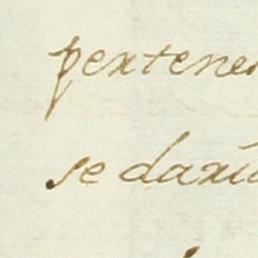 pertene
se dari